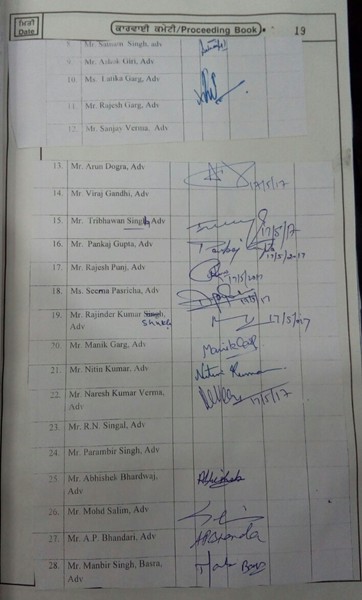 ਮਿਤੀ
Date
ਕਾਰਵਾਈ ਕਮੇਟੀ/Proceeding Book
19
8. Mr. Sanjeev Singh, adv
9. Mr. Ashok Giri, Adv
10. Ms. Latika Garg, Adv
11. Mr. Rajesh Garg, Adv
12. Mr. Sanjay Verma, Adv
13. Mr. Arun Dogra, Adv 17/5/17
14. Mr. Viraj Gandhi, Adv
15. Mr. Tribhawan Singh, Adv 17/5/17
16. Mr. Pankaj Gupta, Adv Pankaj 17/5/2017
17. Mr. Rajesh Punj, Adv 17/5/2017
18. Ms. Seema Pasricha, Adv
19. Mr. Rajinder Kumar Singh, Adv 17/5/017
20. Mr. Manik Garg, Adv Manik Garg
21. Mr. Nitin Kumar, Adv Nitin Kumar
22. Mr. Naresh Kumar Verma, Adv 17/5/17
23. Mr. R.N. Singal, Adv
24. Mr. Parambir Singh, Adv
25. Mr. Abhishek Bhardwaj, Adv Abhishek
26. Mr. Mohd Salim, Adv
27. Mr. A.P. Bhandari, Adv
28. Mr. Manbir Singh, Basra, Adv